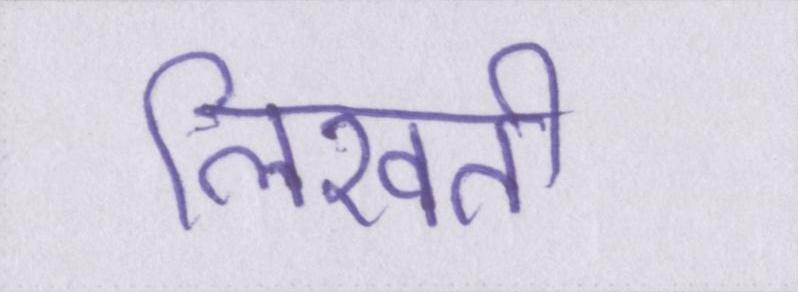 लिखती